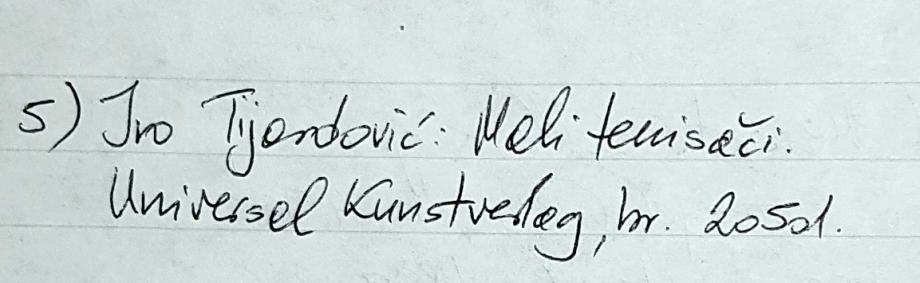 5) Ivo Tijardović: Mali tenisači.
Universal Kunstverlag, br. 205d.